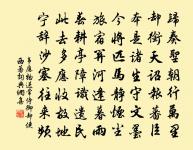 歸奏聖朝行萬里
卻銜天詔報蕃臣
本是諸生守文墨
今將匹馬靜煙塵
旅宿關河逢暮雨
春耕亭障識遺民
此去多應收故地
寧辭沙塞往來頻
韋應物送常侍御卻使
西蕃詞典網集